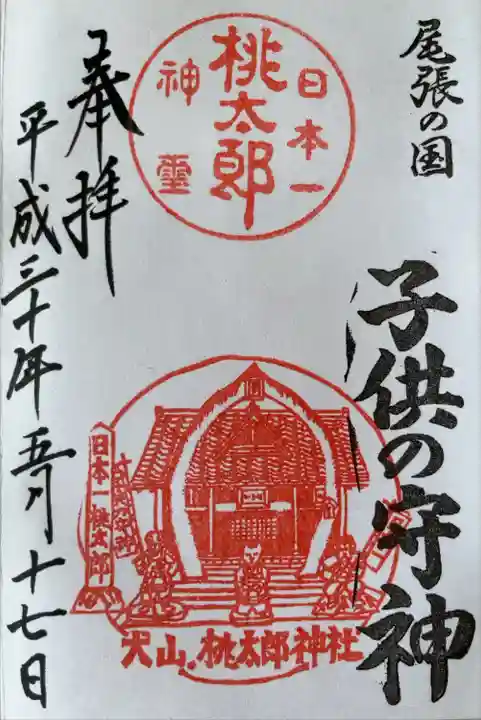 尾張の国
子供の守神
日本一
桃太郎
神璽
日本一桃太郎
犬山.桃太郎神社
奉拝
平成三十年五月十七日